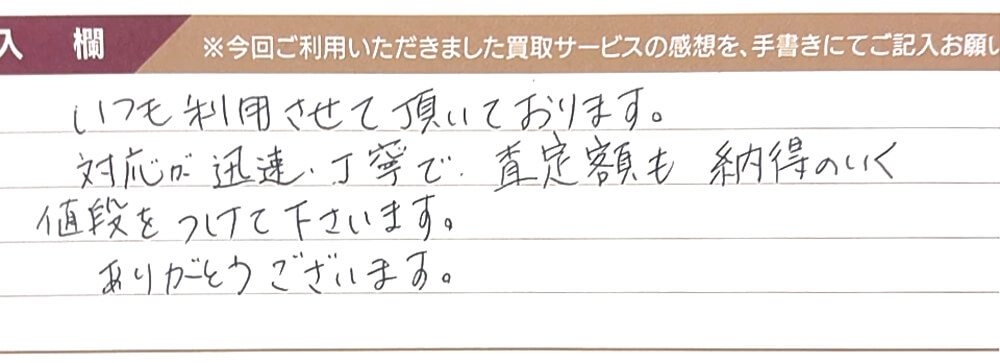 入 欄
※今回ご利用いただきました買取サービスの感想を、手書きにてご記入お願い
いつも利用させて頂いております。
対応が迅速、丁寧で、査定額も 納得のいく
値段をつけて下さいます。
ありがとうございます。